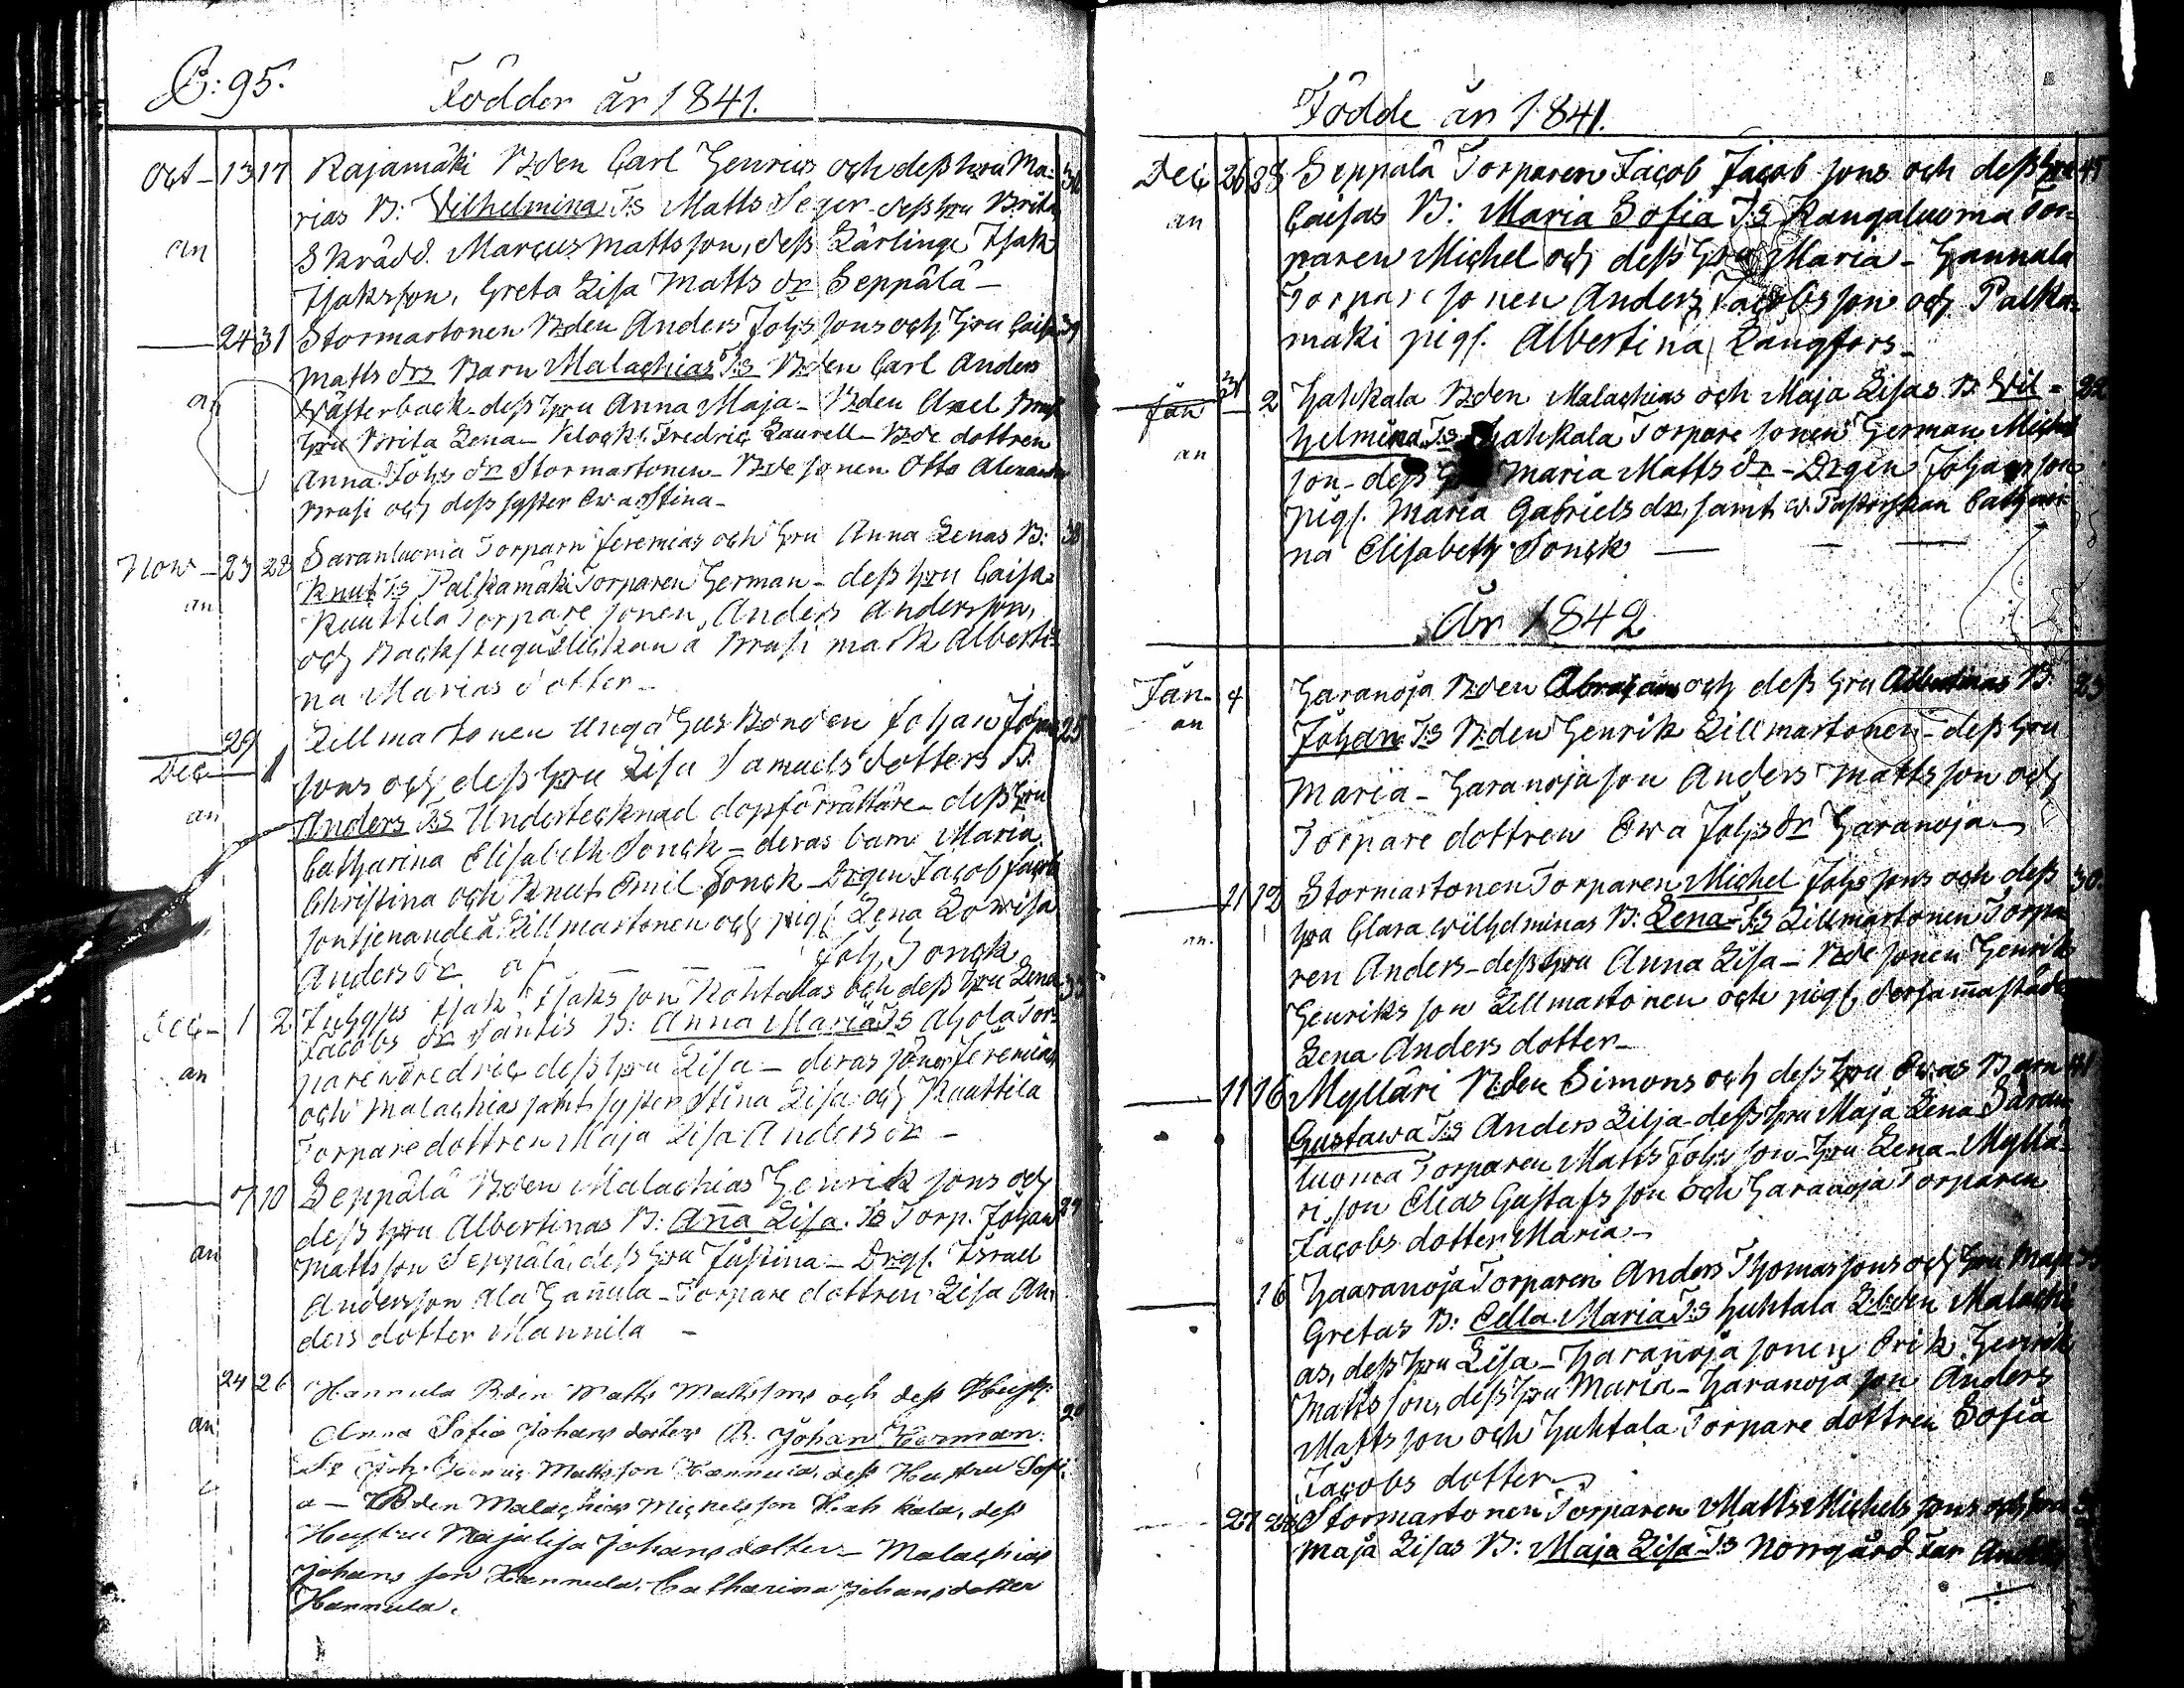 B: 95.
Födder år 1841.
Oct 13 17 Rajamäki Bden Carl Henrics och dess hru Ma- 36
rias B: Wilhelmina T:s Matts Seger dess hru Brita
an Skrädd. Marcus Mattsson, dess Lärlinge Isak
Isaksson, Greta Lisa Matts dr Seppälä
24 31 Stormartonen Bden Anders Johs sons och hru Caisa 39
Matts drs Barn Malachias T:s Bden Carl Anders
Wästerback dess hru Anna Maja Bden Axel
hru Brita Lena Klock. Fredric Laurell Bde dottren
Anna Johs dr Stormartonen Bde sonen Otto Alexander
Brusi och dess syster Ewa Stina
Saranluoma Torparn Jeremias och hru Anna Lenas B: 38
Now 23 28 Knut T:s Palkamäki Torparen Herman dess hru Caisa
an Kauttila Torpare sonen, Anders Andersson,
och Backstugu flickan å Brusi mark Alberti-
na Marias dotter
29 Lillmartonen unga Hus Bonden Johan Johan 25
Dec 1 sons och dess hru Lisa Samuels dotters B.
an Anders T:s Undertecknad dopförrättare dess hru
Catharina Elisabeth Tonck deras barn Maria
Christina och Knut Emil Tonck Drgen Jacob Jacob
son tjenande å Lillmartonen och pigs. Lena Lowisa
Anders dr af Joh. Tonck
Dec 1 2 Inhyses Isak Isaks son Kohtalas och dess hru Lena 33
Jacobs dr Säntis B: Anna Maria T:s Ahola Tor-
an paren Fredric dess hru Lisa deras söner Jeremias
och Malachias samt syster Stina Lisa och Kauttila
Torpare dottren Maja Lisa Anders dr
7 10 Seppälä Bden Malachias Henrik sons och
dess hru Albertinas B: Anna Lisa T:s Torp. Johan 27
an Matts son Seppälä, dess hru Justina Drgs. Israel
Andersson Ala Hannula Torpare dottren Lisa An-
ders dotter Mannila
24 26 Hannula Bden Matts Mattssons och dess Hustr:
an Anna Sofia Johans dotters B. Johan Herman:
Mattsson Hannula, dess Hustru Sofi
a Bden Malachias Michelsson Hahkala, dess
Hustru Majalisa Johans dotter Malachias
Johans son Hannula. Catharina Johans dotter
Hannula.
Födde år 1841.
Dec 26 28 Seppälä Torparen Jacob Jacob sons och dess hru 45
an Caisas B: Maria Sofia T:s Kangaluoma Tor-
paren Michel och dess hru Maria Hannula
Torpare sonen Anders Jacobs son och Palka-
mäki pigs. Albertina Långfors
31 Jan 2 Hahkala Bden Malachias och Maja Lisas B. Wil- 22
helmina T:s Hahkala Torpare sonen Herman Michel
an son dess Maria Matts dr Drgen Johan son
pigs. Maria Gabriels dr, samt Pastorskan Cathari-
na Elisabeth Tonck
År 1842
Jan 4 Haranoja Bden Abraham och dess hru Albertinas B: 23
an Johan T:s Bden Henrik Lillmartonen dess hru
Maria Haranoja son Anders Mattsson och
Torpare dottren Ewa Johs dr Haranoja
11 12 Stormartonen Torparen Michel Johs sons och dess 30.
an. hra Clara Wilhelminas B: Lena T:s Lillmartonen Torpa
ren Anders dess hru Anna Lisa Bde sonen Henrik
Henriks son Lillmartonen och pigs. dersammastädes
Lena Anders dotter
11 16 Mylläri Bden Simons och dess hru Ewas Barn 41
Gustawa T:s Anders Lilja dess hru Maja Lena Saran
luoma Torparen Matts Johs son hru Lena Myllä-
ri, son Elias Gustafs son och Haranoja Torparen
Jacobs dotter Maria
16 Haaranoja Torparen Anders Thomas sons och hru Maja
Gretas B: Edla Maria T:s Huhtala Bden Malachi
as, dess hru Lisa Haranoja sonen Erik Henrik
Matts son, dess hru Maria Haranoja son Anders
Matts son och Huhtala Torpare dottren Sofia
Jacobs dotter
27 28 Stormartonen Torparen Matts Michels sons och hru
Maja Lisas B: Maja Lisa T:s Norrgård